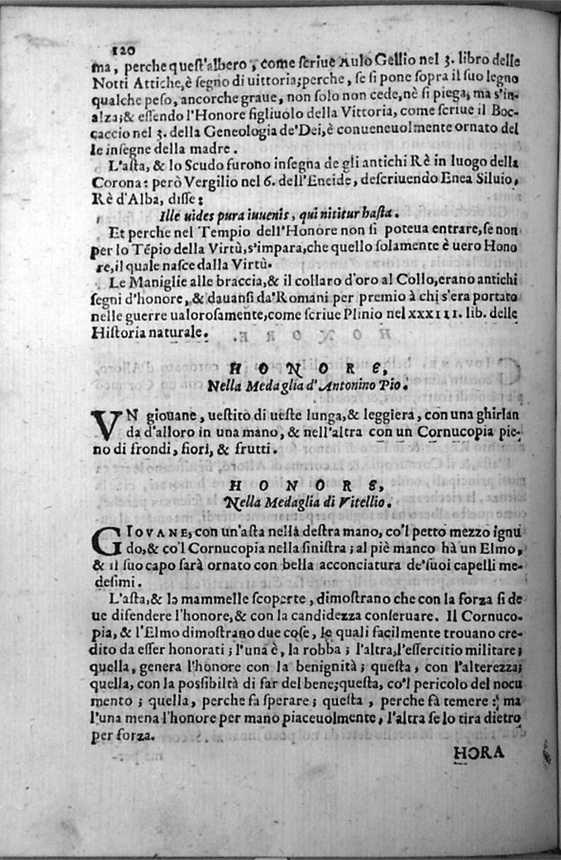 120
ma, perche quest'albero, come scriue Aulo Gellio nel 3. libro delle
Notti Attiche, è segno di uittoria; perche, se si pone sopra il suo legno
qualche peso, ancorche graue, non solo non cede, nè si piega, ma s'in-
alza; & essendo l'Honore figliuolo della Vittoria, come scriue il Boc-
caccio nel 3. della Geneologia de'Dei, è conueneuolmente ornato del
le insegne della madre.
L'asta, & lo Scudo furono insegna de gli antichi Rè in luogo della
Corona: però Vergilio nel 6. dell'Eneide, descriuendo Enea Siluio,
Rè d'Alba, disse:
Ille uides pura iuuenis, qui nititur hasta.
Et perche nel Tempio dell'Honore non si poteua entrare, se non
per lo Tēpio della Virtù, s'impara, che quello solamente è uero Hono
re, il quale nasce dalla Virtù.
Le Maniglie alle braccia, & il collaro d'oro al Collo, erano antichi
segni d'honore, & dauansi da'Romani per premio à chi s'era portato
nelle guerre ualorosamente, come scriue Plinio nel XXXIII. lib. delle
Historia naturale.
HONORE,
Nella Medaglia d'Antonino Pio.
VN giouane, uestito di ueste lunga, & leggiera, con una ghirlan
da d'alloro in una mano, & nell'altra con un Cornucopia pie-
no di frondi, fiori, & frutti.
HONORE,
Nella Medaglia di Vitellio.
GIOVANE, con un'asta nella destra mano, co'l petto mezzo ignu
do, & co'l Cornucopia nella sinistra; al piè manco hà un Elmo,
& il suo capo sarà ornato con bella acconciatura de'suoi capelli me-
desimi.
L'asta, & la mammelle scoperte, dimostrano che con la forza si de
ue difendere l'honore, & con la candidezza conseruare. Il Cornuco-
pia, & l'Elmo dimostrano due cose, le quali facilmente trouano cre-
dito da esser honorati; l'una è, la robba; l'altra, l'essercitio militare;
quella, genera l'honore con la benignità; questa, con l'alterezza;
quella, con la possibiltà di far del bene; questa, co'l pericolo del nocu
mento; quella, perche fa sperare; questa, perche fà temere: ma
l'una mena l'honore per mano piaceuolmente, l'altra se lo tira dietro
per forza.
HORA